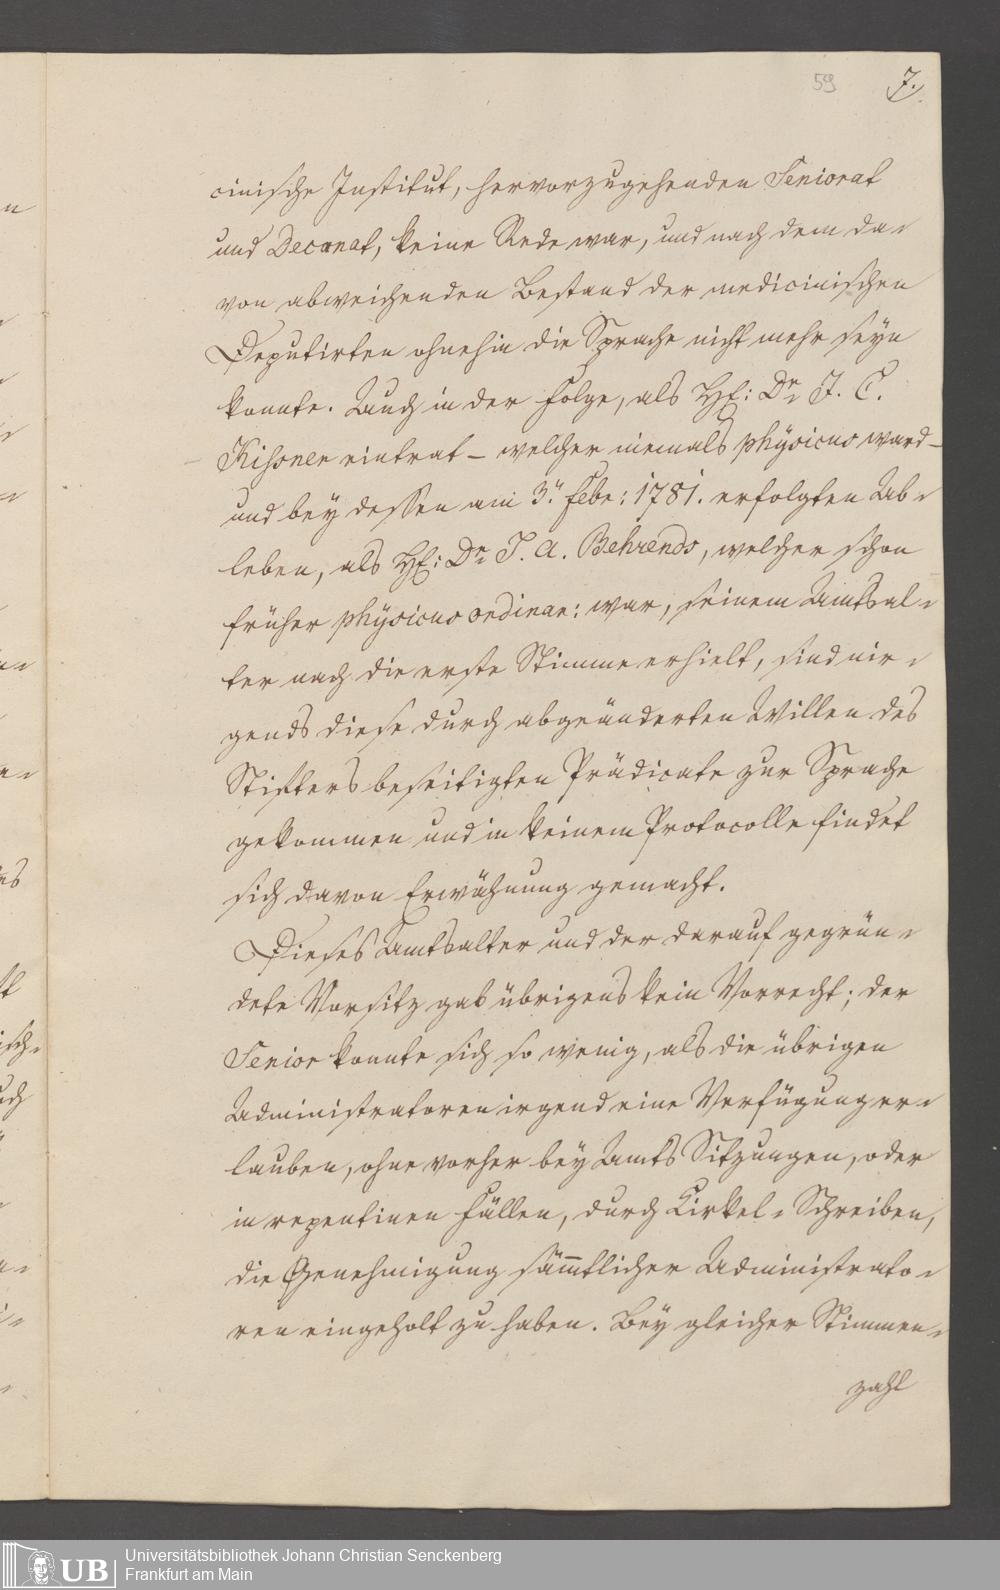 59 7.
cinische Institut, hervorzugehenden Seniorat
und Decanat, keine Rede war, und nach dem da-
von abweichenden Bestand der medicinischen
Deputirten ohnehin die Sprache nicht mehr seyn
konnte. Auch in der Folge, als Hr: Dr. J. C.
Kißner eintrat – welcher niemals physicus ward –
und bey dessen am 3n. Febr: 1781. erfolgten Ab-
leben, als Hr: Dr. J. A. Behrends, welcher schon
früher physicus ordinar: war, seinem Amtsal-
ter nach die erste Stimme erhielt, sind nir-
gends diese durch abgeänderten Willen des
Stifters beseitigten Prädicate zur Sprache
gekommen und in keinem Protocolle findet
sich davon Erwähnung gemacht.
Dieses Amtsalter und der darauf gegrün-
dete Vorsitz gab übrigens kein Vorrecht; der
Senior konnte sich so wenig, als die übrigen
Administratoren irgend eine Verfügung er-
lauben, ohne vorher bey Amts Sitzungen, oder
in repentinen Fällen, durch Cirkel-Schreiben,
die Genehmigung säm̅tlicher Administrato-
ren eingeholt zu haben. Bey gleicher Stimmen-
zahl
UB Universitätsbibliothek Johann Christian Senckenberg
Frankfurt am Main